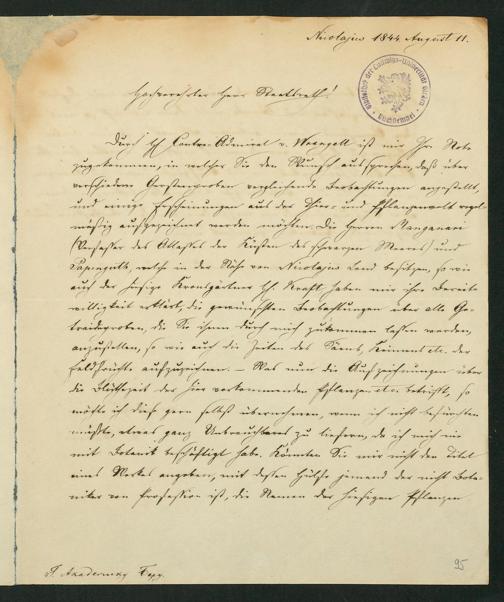 Nicolajew 1844 August 11.
Bibliothek der Ludwigs-Universität Giessen
Buchstempel
Hochverehrter Herr Staatsrath!
Durch H. Contre-Admiral v. Wrangell ist mir Ihr Note
zugekommen, in welcher Sie den Wunsch aussprechen, daß über
verschiedene Gerstenproben vergleichende Beobachtungen angestellt,
und einige Erscheinungen aus der Thier- und Pflanzenwelt regel-
mäßig aufgezeichnet werden möchten. Die Herren Manganari
(Verfasser des Atlasses der Küsten des schwarzen Meeres) und
welche in der Nähe von Nicolajew Land besitzen, so wie
auch der hiesige Kronsgärtner H. Kraft haben mir ihre Bereit-
willigkeit erklärt, die gewünschten Beobachtungen über alle Ge-
traideproben, die Sie ihnen durch mich zukommen lassen werden,
anzustellen, so wie auch die Zeiten des Säens, Keimens etc. der
Feldfrüchte aufzuzeichnen. – Was nun die Aufzeichnungen über
die Blüthezeit der hier vorkommenden Pflanzen etc. betrifft, so
möchte ich dieß gern selbst übernehmen, wenn ich nicht befürchten
müßte, etwas ganz Unbrauchbares zu liefern, da ich mich nie
mit Botanik beschäftigt habe. Könnten Sie mir nicht den Titel
eines Werkes angeben, mit dessen Hülfe jemand der nicht Bota-
niker von Profession ist, die Namen der hiesigen Pflanzen
95